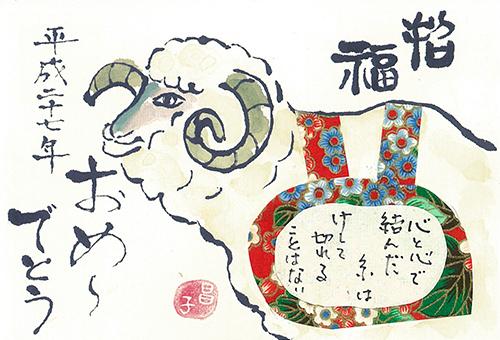 招
福
心と心で
結んだ
糸は
けして
切れる
ことはない
おめ〜
でとう
平成二十七年
昌
子